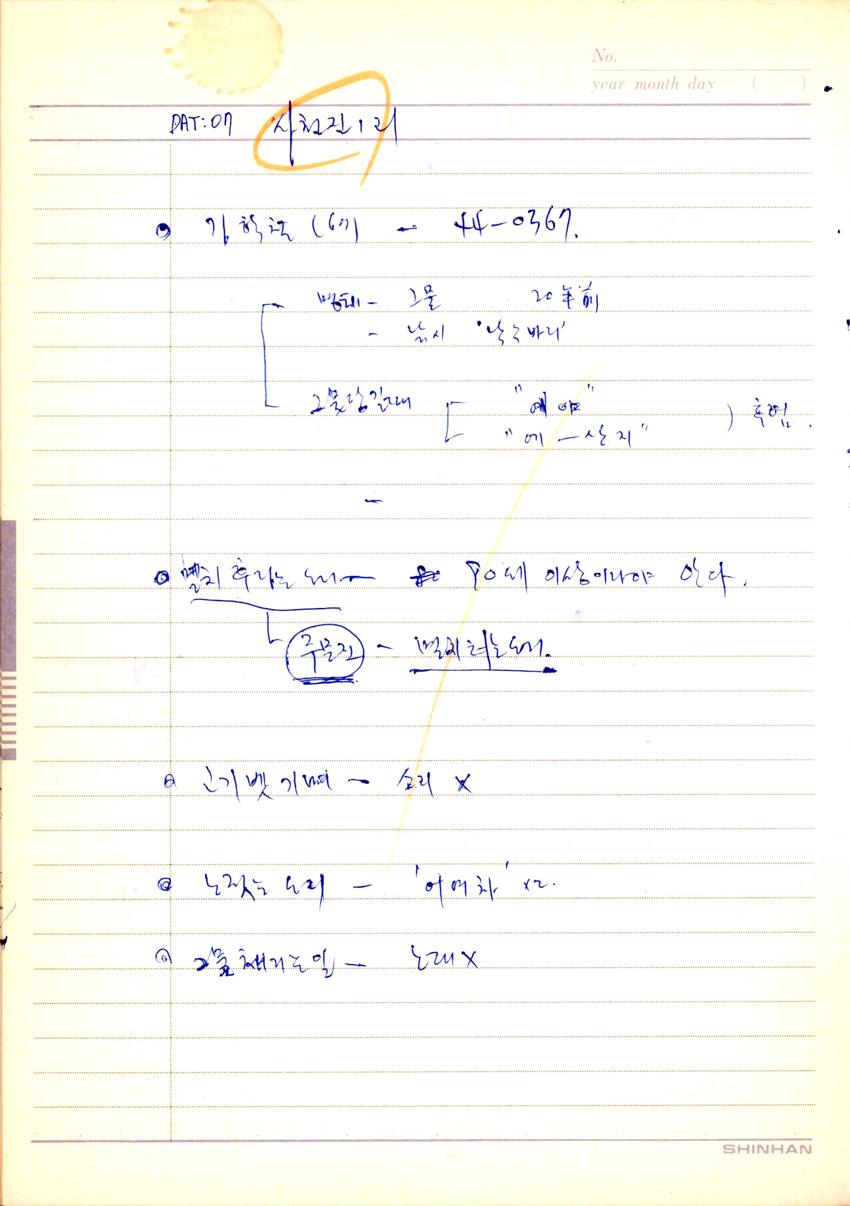 No.
year month day ( )
DAT:07 사천진1리
김학철 (67) - 44-0367.
명태 - 그물 20年前
- 낚시 '낙수바리'
그물당길때 "에야"
"에 - 산지" ) 후렴.
-
멸치 후리는 소리 - 80세 이상이라야 안다.
주문진 - 멸치 터는 소리.
고기 벳기며 - 소리 x
노 젓는 소리 - '어여차' x2.
그물 는 일 - 노래 x
SHINHAN